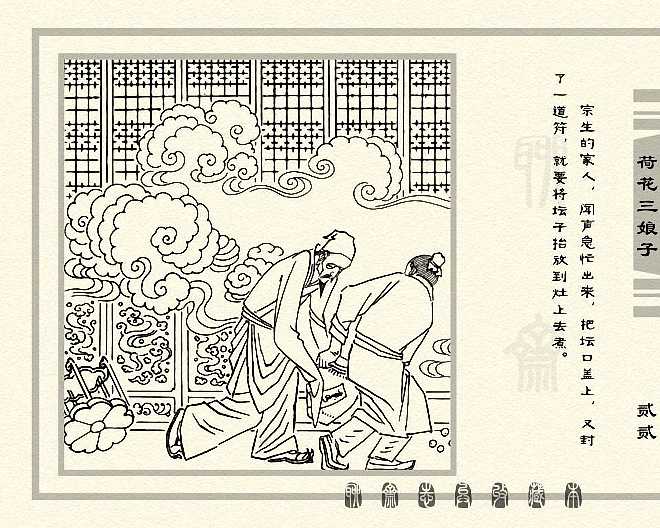 宗生的家人，闻声急忙出来，把坛口盖上，又封
了一道符，就要将坛子抬放到灶上去煮。
荷花三娘子
贰贰
聊斋志异收藏本